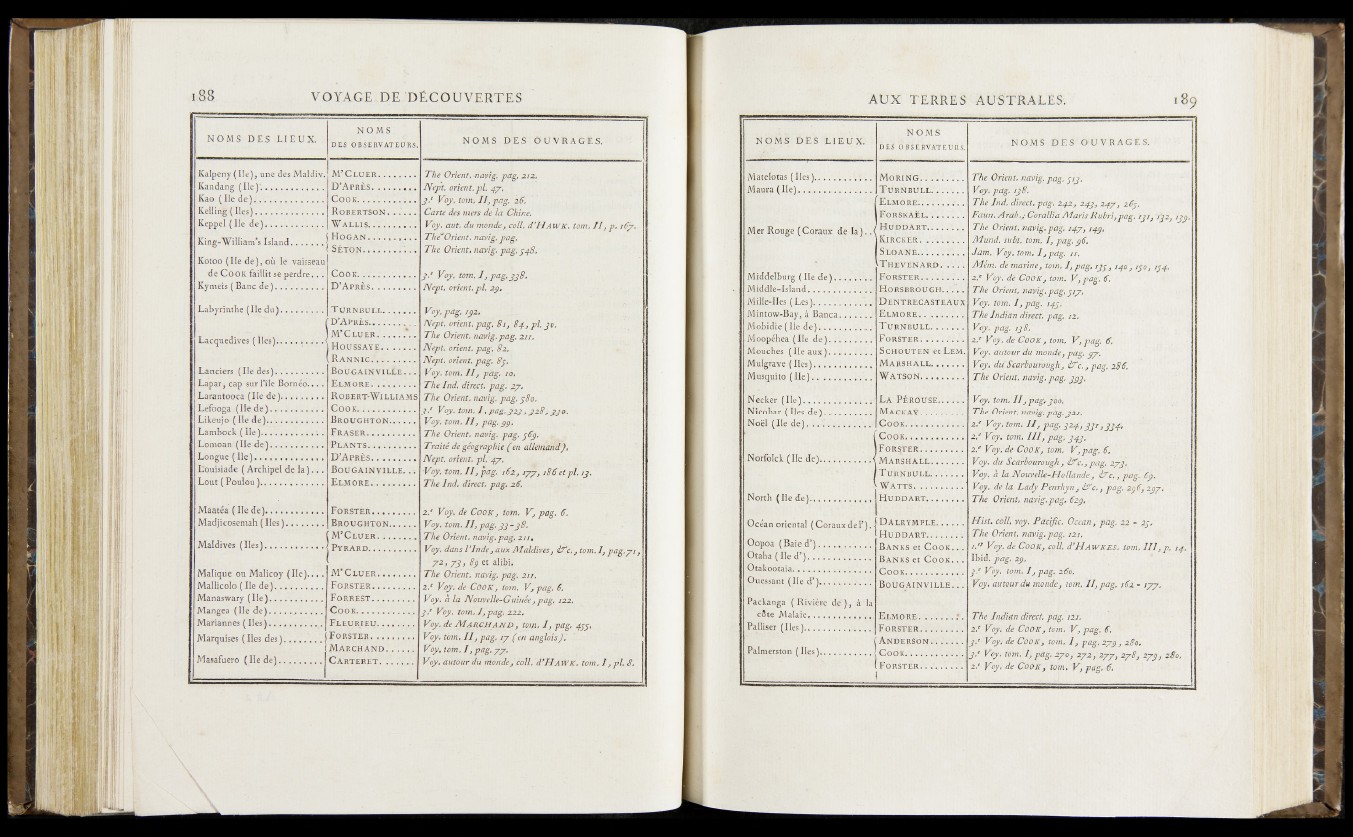 188 VOYAGE DE DÉCOUVERTES
NOMS DES LIEUX. NOMS DES OBSERVATEURS. NOMS DES OUVRAGES.
Kalpeny (Ile), une des Maldiv. M'CLUER........ The Orient. navig. pag. 212.
Kandang (Ile)............. D'APRÈS........ Nept. orient. pl. 47.
Kao (Ile de).............. COOK............ 3.e Voy. tom. II, pag. 26.
Kelling (Iles).............. ROBERTSON...... Carte des mers de la Chine.
Keppel (Ile de)............ WALLIS.......... Voy. aut. du monde, coll. d'HAWK. tom. II, p. 167.
King-William's Island....... HOGAN.......... The Orient. navig. pag.
SETON.......... The Orient. navig. pag. 548.
Kotoo (Ile de), où le vaisseau
de COOK faillit se perdre... COOK............ 3.e Voy. tom. I, pag. 338.
Kymeis (Banc de).......... D'APRÈS......... Nept. orient. pl. 29.
Labyrinthe (Ile du).......... TURNBULL....... Voy. pag. 192.
Lacquedives (Iles).......... D'APRÈS........ Nept. orient. pag. 81, 84, pl. 30.
M'CLUER........ The Orient. navig. pag. 211.
HOUSSAYE....... Nept. orient. pag. 82.
RANNIC......... Nept. orient. pag. 85.
Lanciers (Ile des)........... BOUGAINVILLE... Voy. tom. II, pag. 10.
Lapar, cap sur l'île Bornéo.... ELMORE......... The Ind. direct. pag. 27.
Larantooca (Ile de)......... ROBERT-WILLIAMS The Orient. navig. pag. 580.
Lefooga (Ile de)............ COOK............ 3.e Voy. tom. I, pag. 323, 328, 330.
Likeujo (Ile de)............ BROUGHTON...... Voy. tom. II, pag. 99.
Lambock (Ile)............. FRASER.......... The Orient. navig. pag. 569.
Lomoan (Ile de)........... PLANTS.......... Traité de géographie (en allemand).
Longue (Ile).............. D'APRÈS......... Nept. orient. pl. 47.
Louisiade (Archipel de la)... BOUGAINVILLE... Voy. tom. II, pag. 162, 177, 186 et pl. 13.
Lout (Poulou)............. ELMORE......... The Ind. direct. pag. 26.
Maatéa (Ile de)............ FORSTER......... 2.e Voy. de COOK, tom. V, pag. 6.
Madjicosemah (Iles)........ BROUGHTON...... Voy. tom. II, pag. 33-38.
Maldives (Iles)............. M'CLUER........ The Orient. navig. pag. 211.
PYRARD......... Voy. dans l'Inde, aux Maldives, &c., tom. I, pag. 71,
72, 73, 89 et alibi.
Malique ou Malicoy (Ile).... M'CLUER........ The Orient. navig. pag. 211.
Mallicolo (Ile de).......... FORSTER......... 2.e Voy. de COOK, tom. V, pag. 6.
Manaswary (Ile)........... FORREST......... Voy. à la Nouvelle-Guinée, pag. 122.
Mangea (Ile de)............ COOK............ 3.e Voy. tom. I, pag. 222.
Mariannes (Iles)............ FLEURIEU........ Voy. de MARCHAND, tom. I, pag. 455.
Marquises (Iles des)........ FORSTER......... Voy. tom. II, pag. 17 (en anglois).
MARCHAND...... Voy. tom. I, pag. 77.
Masafuero (Ile de)......... CARTERET....... Voy. autour du monde, coll. d'HAWK. tom. I, pl. 8.
AUX TERRES AUSTRALES. 189
NOMS DES LIEUX. NOMS DES OBSERVATEURS. NOMS DES OUVRAGES.
Matelotas (Iles)............ MORING......... The Orient. navig. pag. 513.
Maura (Ile)............... TURNBULL....... Voy. pag. 138.
Mer Rouge (Coraux de la).. ELMORE......... The Ind. direct. pag. 242, 243, 247, 265.
FORSKAËL........ Faun. Arab., Corallia Maris Rubri, pag. 131, 132, 139.
HUDDART........ The Orient. navig. pag. 147, 149.
KIRCKER......... Mund. subt. tom. I, pag. 96.
SLOANE.......... Jam. Voy. tom. I, pag. 11.
THEVENARD..... Mém. de marine, tom. I, pag. 135, 140, 150, 154.
Middelburg (Ile de)........ FORSTER......... 2.e Voy. de COOK, tom. V, pag. 6.
Middle-Island............. HORSBROUGH..... The Orient. navig. pag. 517.
Mille-Iles (Les)............ DENTRECASTEAUX Voy. tom. I, pag. 145.
Mintow-Bay, à Banca....... ELMORE......... The Indian direct. pag. 12.
Mobidie (Ile de)........... TURNBULL....... Voy. pag. 138.
Moopéhea (Ile de)......... FORSTER......... 2.e Voy. de COOK, tom. V, pag. 6.
Mouches (Ile aux)......... SCHOUTEN et LEM. Voy. autour du monde, pag. 97.
Mulgrave (Iles)............ MARSHALL....... Voy. du Scarbourough, &c., pag. 286.
Musquito (Ile)............. WATSON......... The Orient. navig. pag. 393.
Necker (Ile).............. LA PÉROUSE..... Voy. tom. II, pag. 300.
Nicobar (Iles de).......... MACKAY......... The Orient. navig. pag. 321.
Noël (Ile de)............. COOK............ 2.e Voy. tom. II, pag. 324, 331, 334.
Norfolck (Ile de).......... COOK............ 2.e Voy. tom. III, pag. 343.
FORSTER......... 2.e Voy. de COOK, tom. V, pag. 6.
MARSHALL....... Voy. du Scarbourough, &c., pag. 273.
TURNBULL....... Voy. à la Nouvelle-Hollande, &c., pag. 69.
WATTS........... Voy. de la Lady Penrhyn, &c., pag. 296, 297.
North (Ile de)............ HUDDART........ The Orient. navig. pag. 629.
Océan oriental (Coraux de l'). DALRYMPLE...... Hist. coll. voy. Pacific. Ocean, pag. 22 - 25.
HUDDART........ The Orient. navig. pag. 121.
Oopoa (Baie d')........... BANKS et COOK... 1.er Voy. de COOK, coll. d'HAWKES. tom. III, p. 14.
Otaha (Ile d')............. BANKS et COOK... Ibid. pag. 29.
Otakootaia................ COOK............ 3.e Voy. tom. I, pag. 260.
Ouessant (Ile d').......... BOUGAINVILLE... Voy. autour du monde, tom. II, pag. 162 - 177.
Packanga (Rivière de), à la
côte Malaie............. ELMORE......... The Indian direct. pag. 121.
Palliser (Iles).............. FORSTER......... 2.e Voy. de COOK, tom. V, pag. 6.
Palmerston (Iles).......... ANDERSON....... 3.e Voy. de COOK, tom. I, pag. 279, 280.
COOK............ 3.e Voy. tom. I, pag. 270, 272, 277, 278, 279, 280.
FORSTER......... 2.e Voy. de COOK, tom. V, pag. 6.